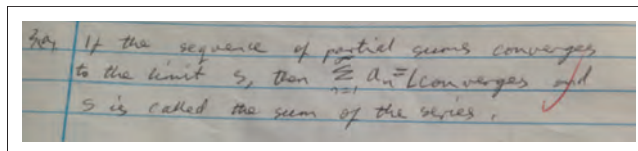 3.a, If the sequence of partial sums converges
to the limit s, then ∞ Σ n=1 aₙ = L converges and
s is called the sum of the series.